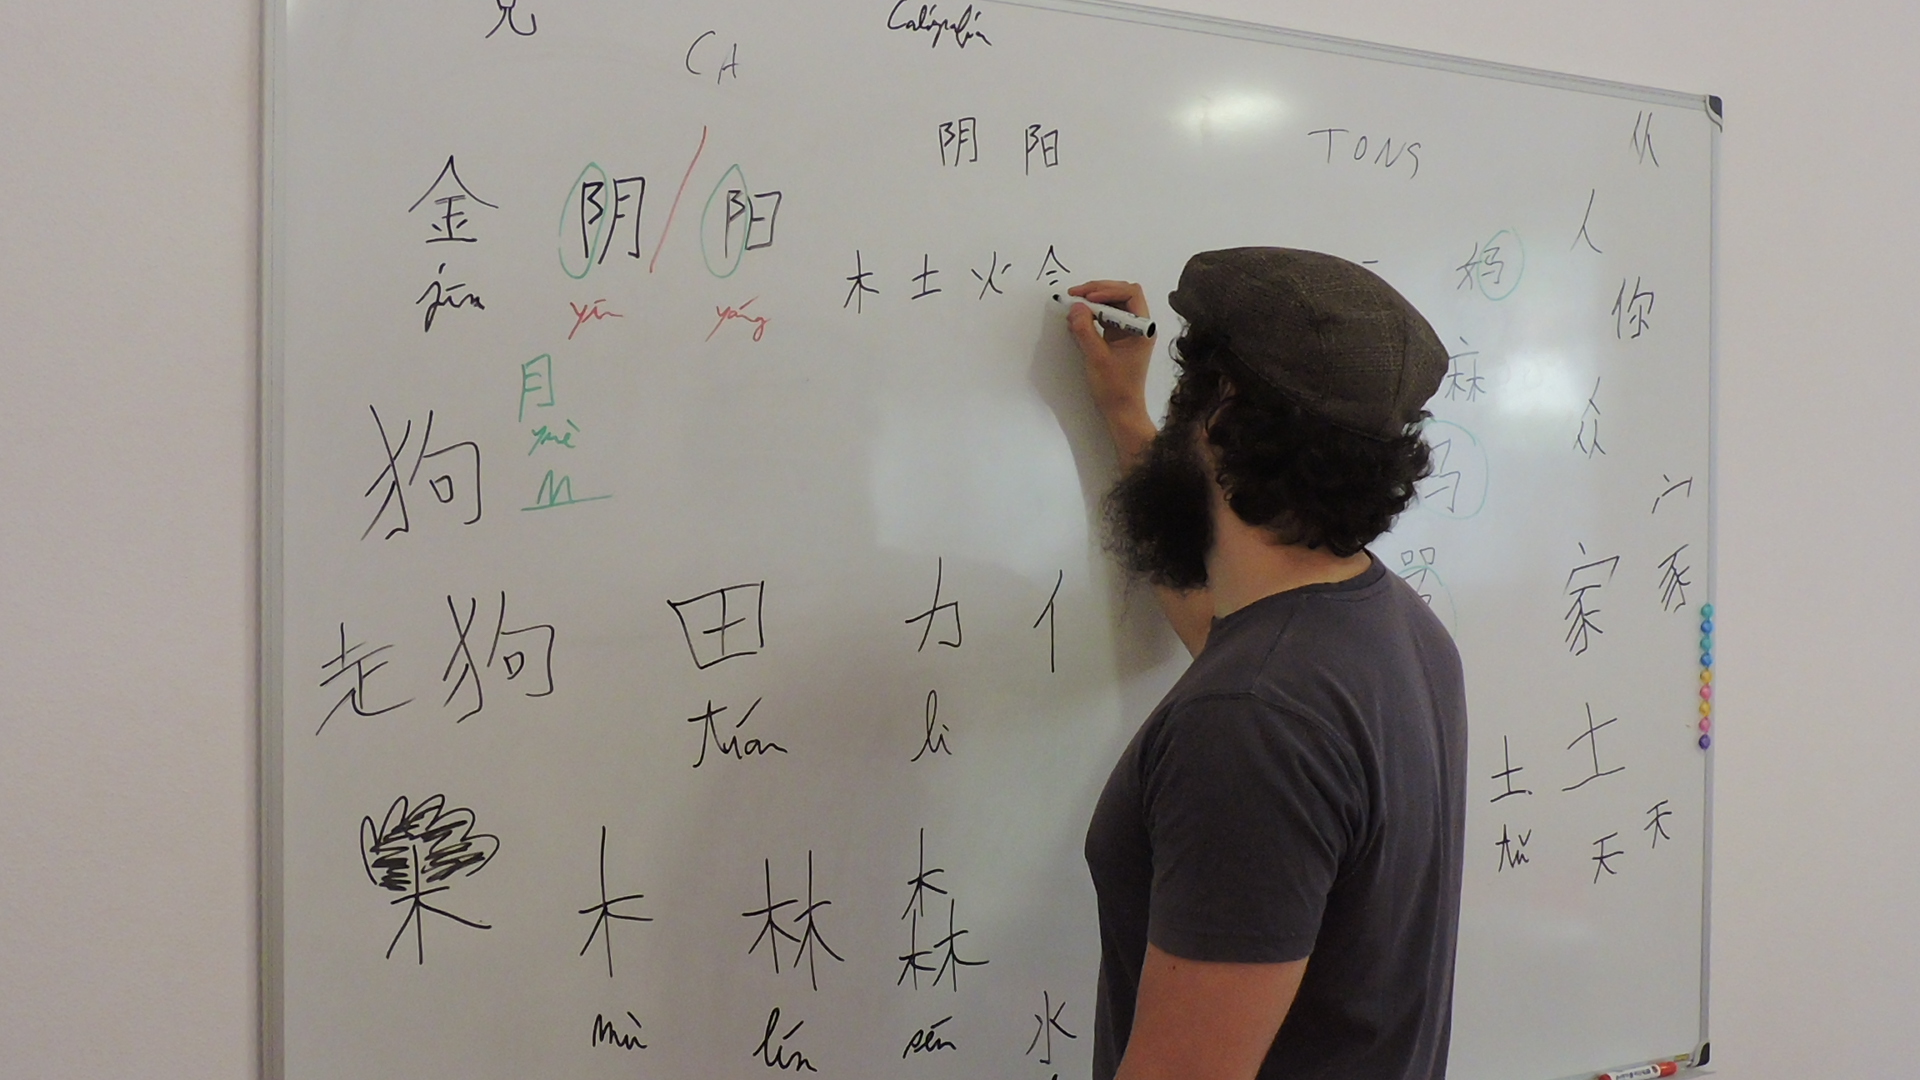 兄
CA
Caligrafia
阴 阳
TONS
从
金 阴 / 阳
jīn yīn yáng
木 土 火
妈
人
你
月
yuè
麻
众
狗
马
宀
家
豕
老 狗
田 力 亻
tián lì
土 土
tǔ
天 天
木
木 林 森
mù lín sēn
水